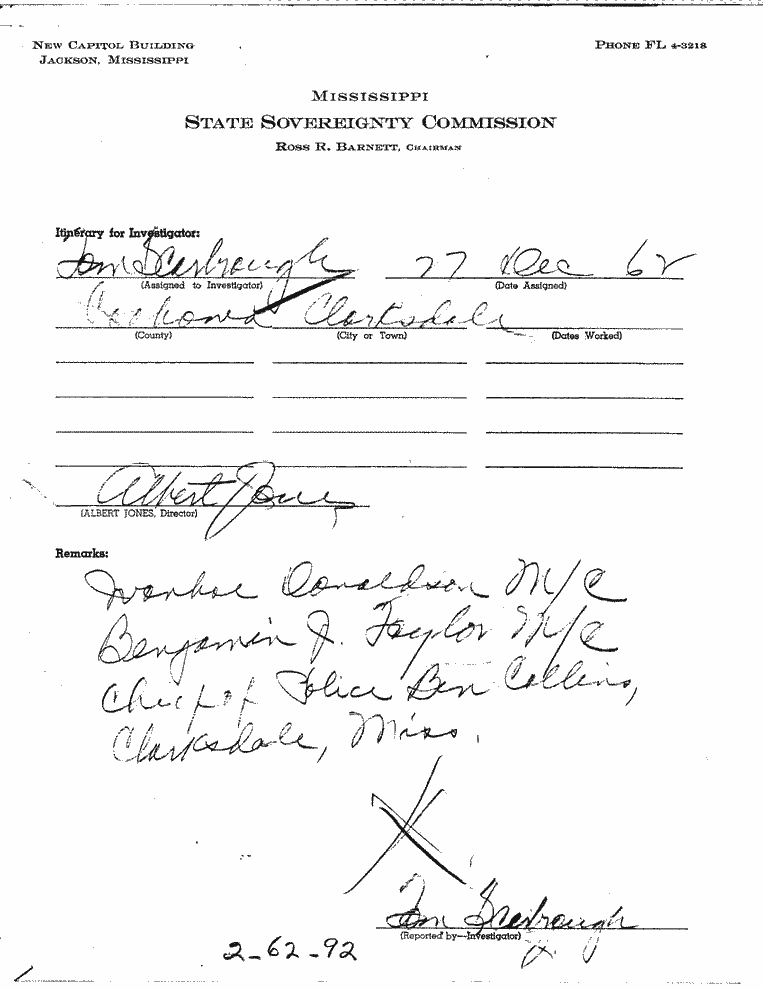 NEW CAPITOL BUILDING
JACKSON, MISSISSIPPI
PHONE FL 4-3218
MISSISSIPPI
STATE SOVEREIGNTY COMMISSION
ROSS R. BARNETT, CHAIRMAN
Itinerary for Investigator:
Tom Scarbrough 27 Dec 62
(Assigned to Investigator) (Date Assigned)
Clarksdale
(County) (City or Town) (Dates Worked)
Albert Jones
(ALBERT JONES, Director)
Remarks:
Ivanhoe Donaldson M/C
Benjamin J. Taylor M/C
Chief of Police Ben Collins,
Clarksdale, Miss.
Tom Scarbrough
(Reported by—Investigator)
2-62-92